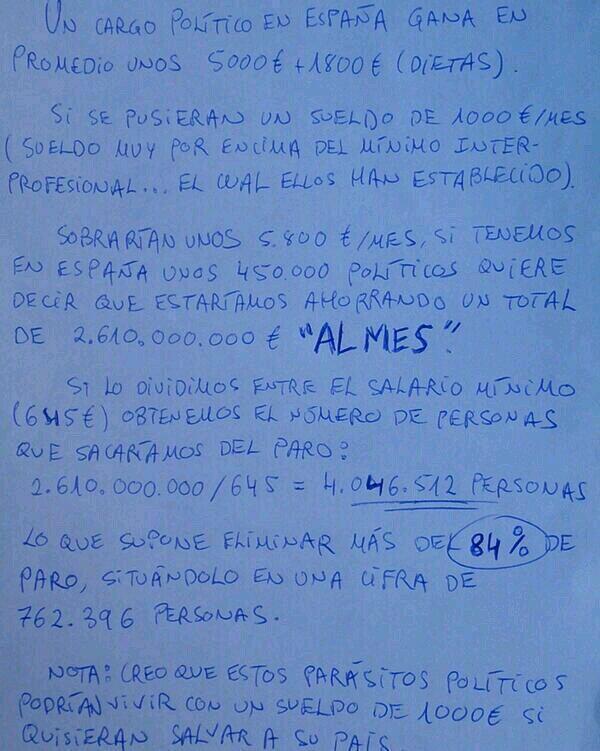 UN CARGO POLÍTICO EN ESPAÑA GANA EN
PROMEDIO UNOS 5000€+1800€ (DIETAS).
SI SE PUSIERAN UN SUELDO DE 1000€/MES
(SUELDO MUY POR ENCIMA DEL MÍNIMO INTER-
PROFESIONAL... EL CUAL ELLOS HAN ESTABLECIDO).
SOBRARÍAN UNOS 5.800 €/MES, SI TENEMOS
EN ESPAÑA UNOS 450.000 POLÍTICOS QUIERE
DECIR QUE ESTARÍAMOS AHORRANDO UN TOTAL
DE 2.610.000.000€ "AL MES".
SI LO DIVIDIMOS ENTRE EL SALARIO MÍNIMO
(645€) OBTENEMOS EL NÚMERO DE PERSONAS
QUE SACARÍAMOS DEL PARO:
2.610.000.000/645 = 4.046.512 PERSONAS
LO QUE SUPONE ELIMINAR MÁS DEL 84% DE
PARO, SITUÁNDOLO EN UNA CIFRA DE
762.396 PERSONAS.
NOTA: CREO QUE ESTOS PARÁSITOS POLÍTICOS
PODRÍAN VIVIR CON UN SUELDO DE 1000€ SI
QUISIERAN SALVAR A SU PAÍS